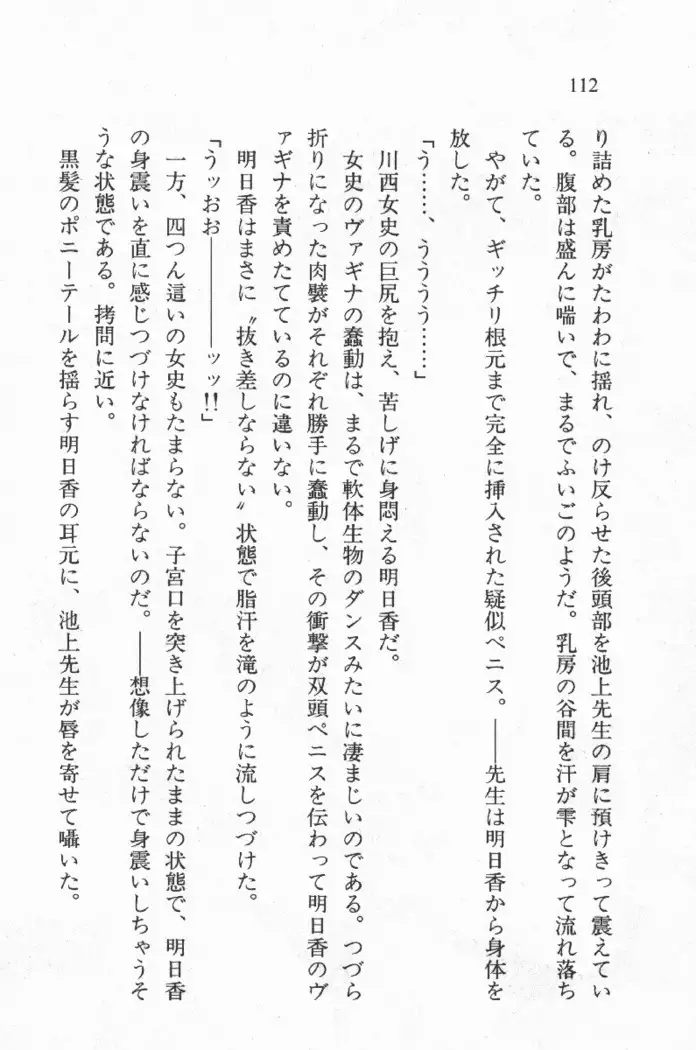 112
り詰めた乳房がたわわに揺れ、のけ反らせた後頭部を池上先生の肩に預けきって震えてい
る。腹部は盛んに喘いで、まるでふいごのようだ。乳房の谷間を汗が雫となって流れ落ち
ていた。
やがて、ギッチリ根元まで完全に挿入された疑似ペニス。――先生は明日香から身体を
放した。
「う……、うううう……」
川西女史の巨尻を抱え、苦しげに身悶える明日香だ。
女史のヴァギナの蠢動は、まるで軟体生物のダンスみたいに凄まじいのである。つづら
折りになった肉襞がそれぞれ勝手に蠢動し、その衝撃が双頭ペニスを伝わって明日香のヴ
ァギナを責めたてているのに違いない。
明日香はまさに〝抜き差しならない〟状態で脂汗を滝のように流しつづけた。
「うッおお――――ッッ!!」
一方、四つん這いの女史もたまらない。子宮口を突き上げられたままの状態で、明日香
の身震いを直に感じつづけなければならないのだ。――想像しただけで身震いしちゃうそ
うな状態である。拷問に近い。
黒髪のポニーテールを揺らす明日香の耳元に、池上先生が唇を寄せて囁いた。